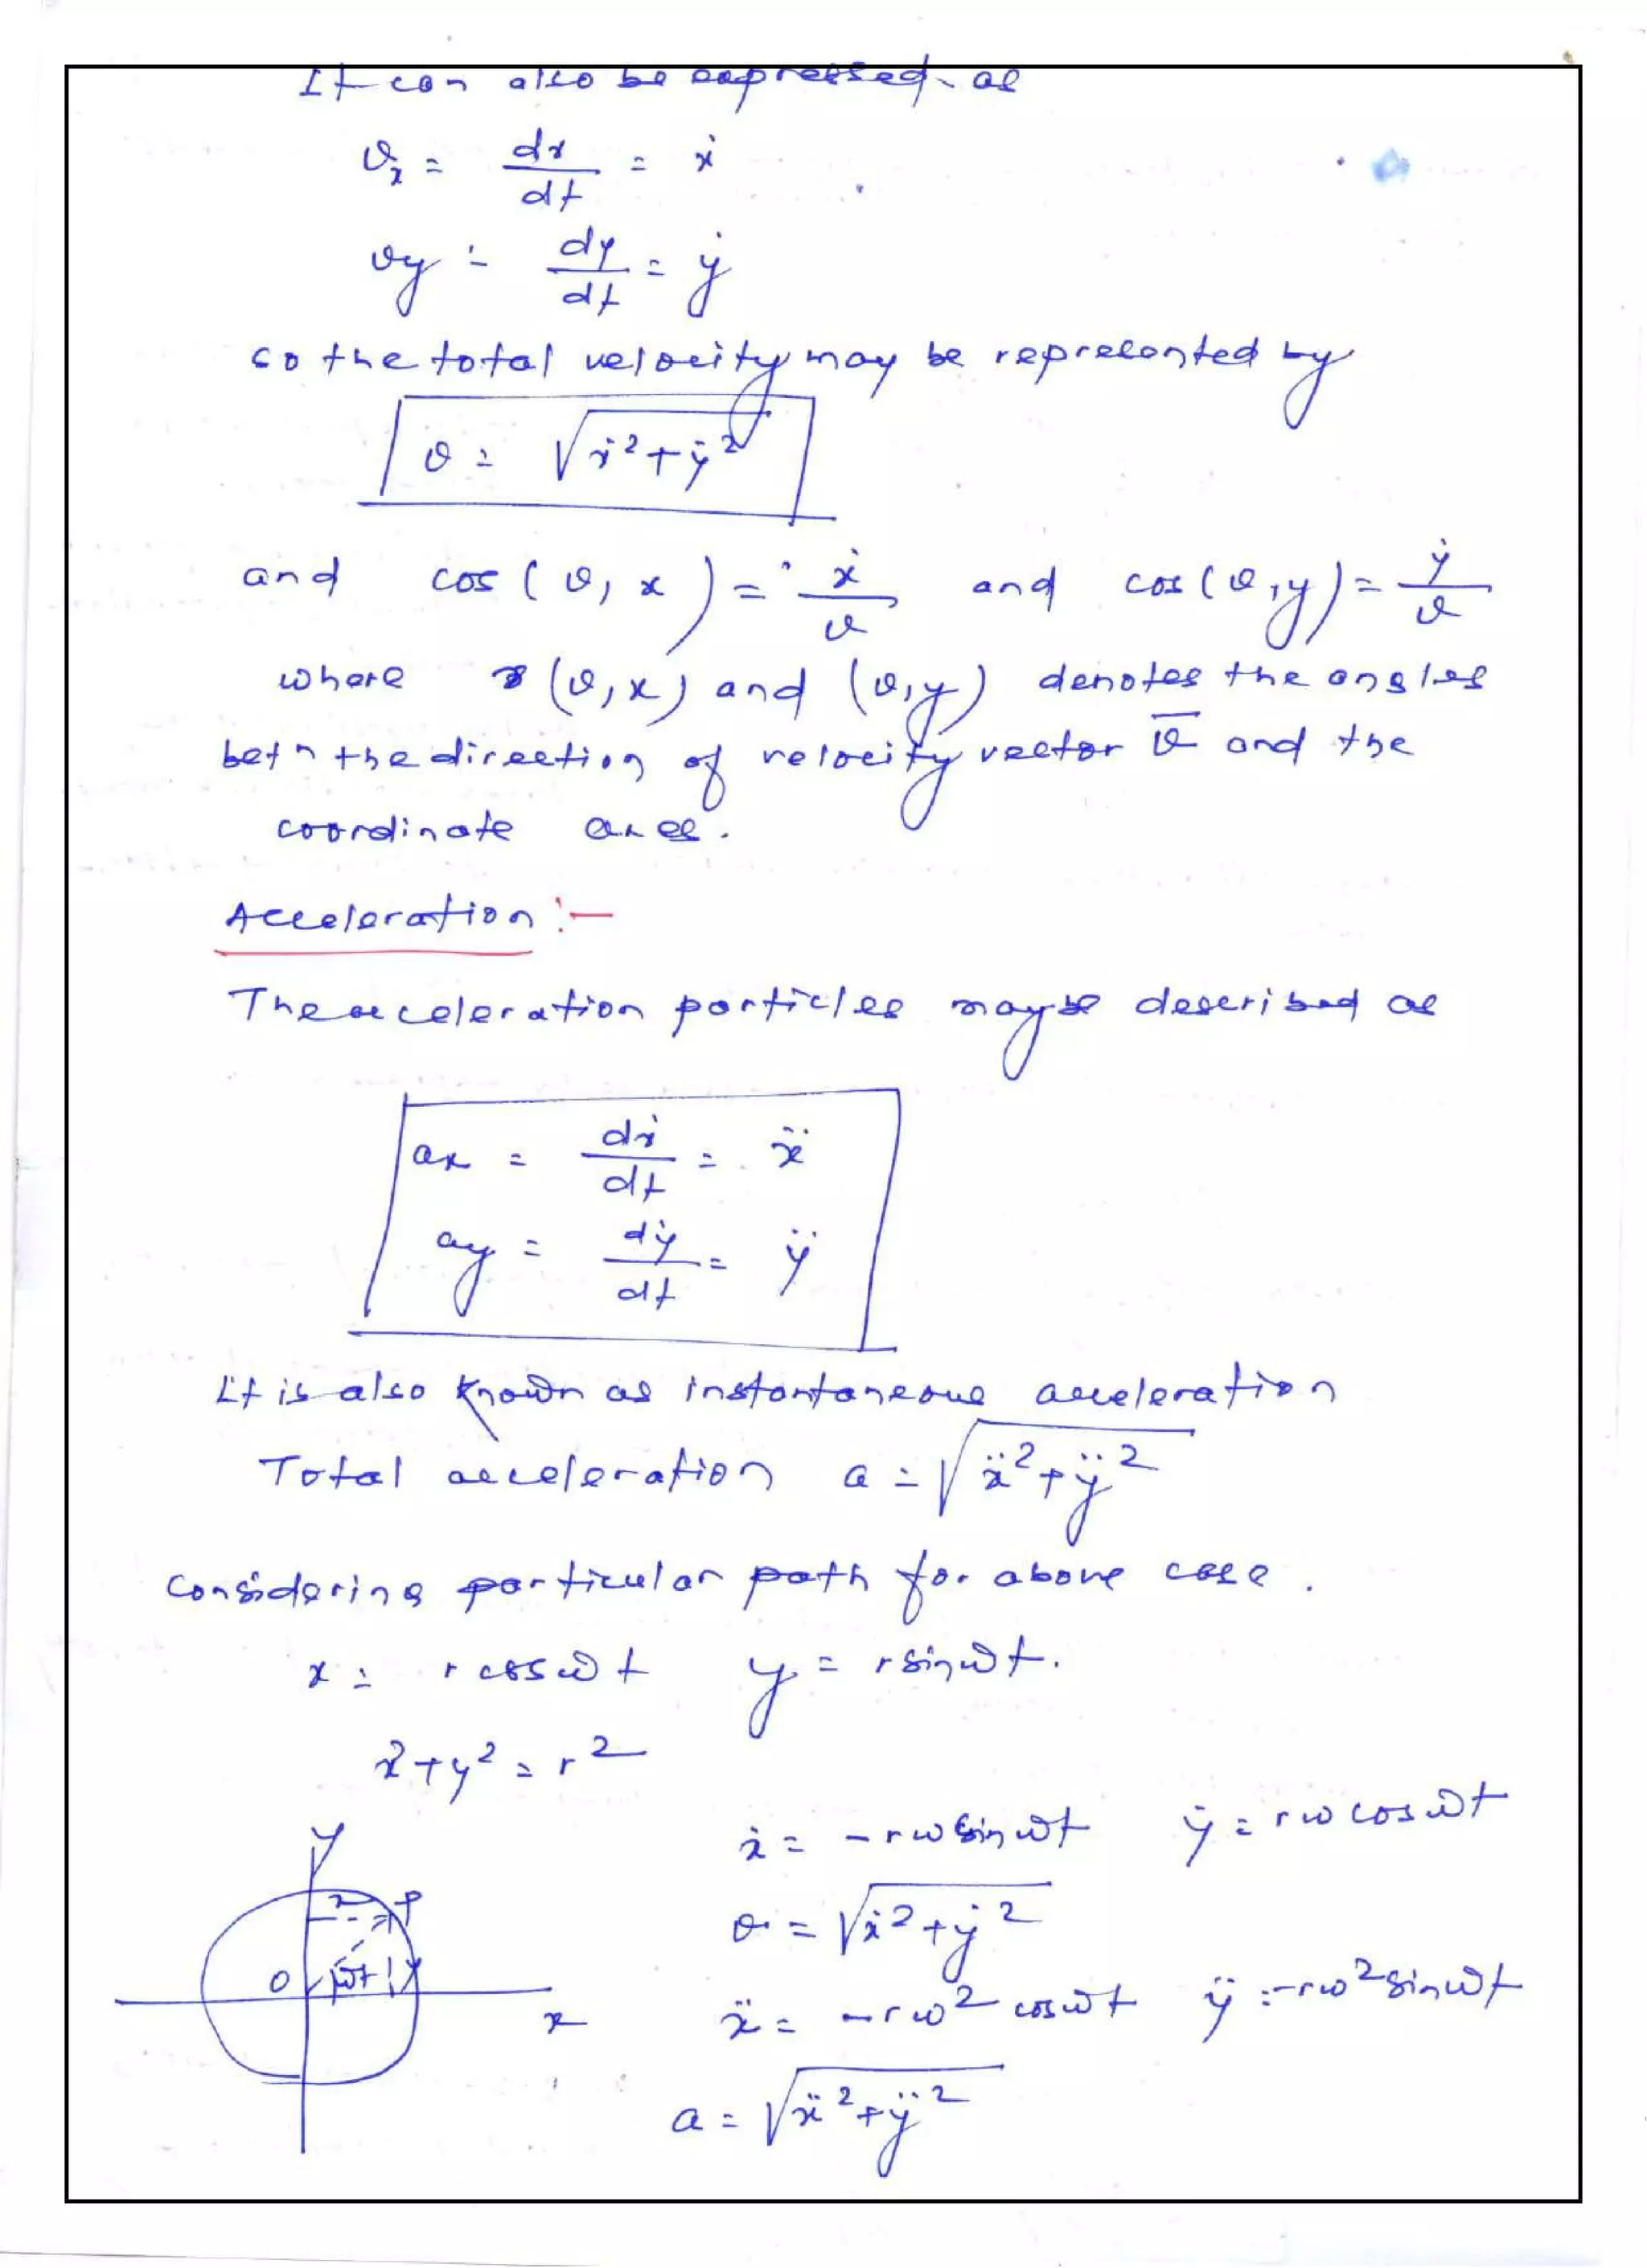 It can also be expressed as
vx = dx/dt = ẋ
vy = dy/dt = ẏ
so the total velocity may be represented by
v = √(ẋ² + ẏ²)
and cos(v, x) = ẋ/v and cos(v, y) = ẏ/v
where (v, x) and (v, y) denotes the angles
betn the direction of velocity vector v̅ and the
coordinate axes.
Acceleration :-
The acceleration particles may be described as
ax = dẋ/dt = ẍ
ay = dẏ/dt = ÿ
It is also known as instantaneous acceleration
Total acceleration a = √(ẍ² + ÿ²)
Considering particular path for above case.
x = r cosωt y = r sinωt.
x² + y² = r²
ẋ = -rω sinωt ẏ = rω cosωt
v = √(ẋ² + ẏ²)
ẍ = -rω² cosωt ÿ = -rω² sinωt
a = √(ẍ² + ÿ²)
y
x P
O ωt y
x